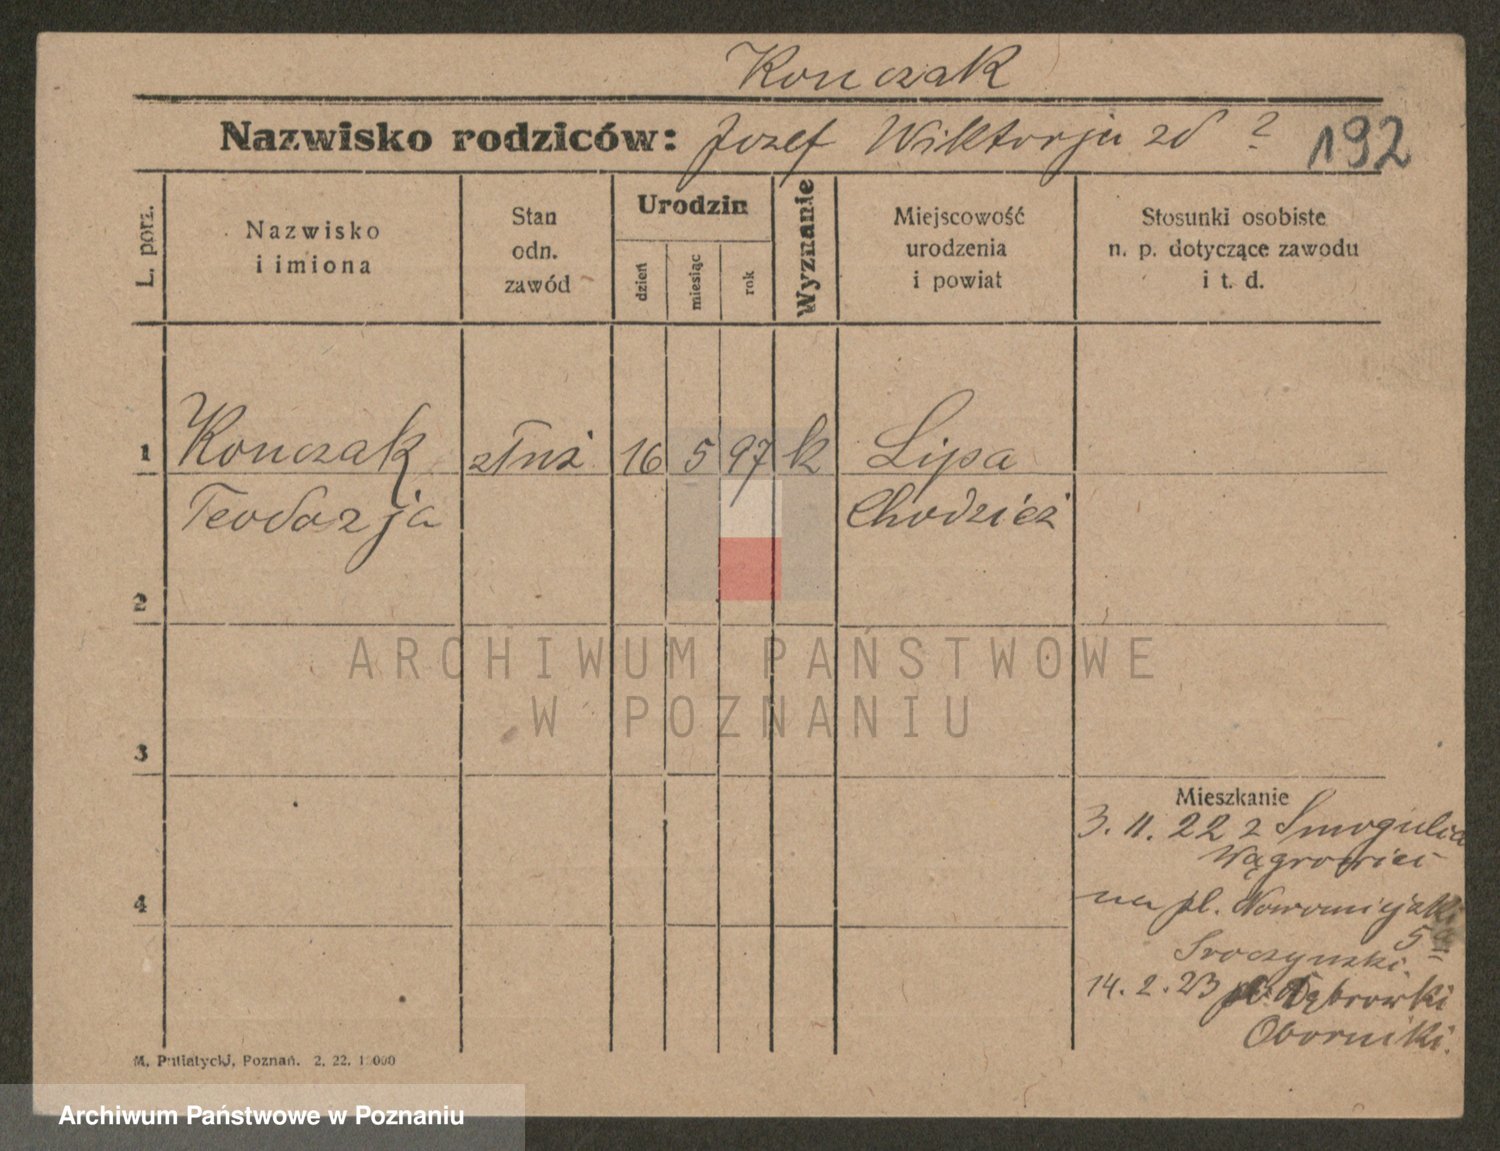 Konczak
Nazwisko rodziców: Jozef Wiktorja zd ? 192
L. porz.
Nazwisko
i imiona
Stan
odn.
zawód
Urodzin
dzień
miesiąc
rok
Wyznanie
Miejscowość
urodzenia
i powiat
Stosunki osobiste
n. p. dotyczące zawodu
i t. d.
1 Konczak 16 5 97 k Lipa
Teodozja Chodzież
2
ARCHIWUM PAŃSTWOWE
W POZNANIU
3
Mieszkanie
3. 11. 22 z Smogulca
Wągrowiec
4
na pl. Nowomiejski
5
Sroczynski.
14. 2. 23 Dąbrowki
Oborniki.
M. Putiatycki, Poznań. 2. 22. 1 000
Archiwum Państwowe w Poznaniu